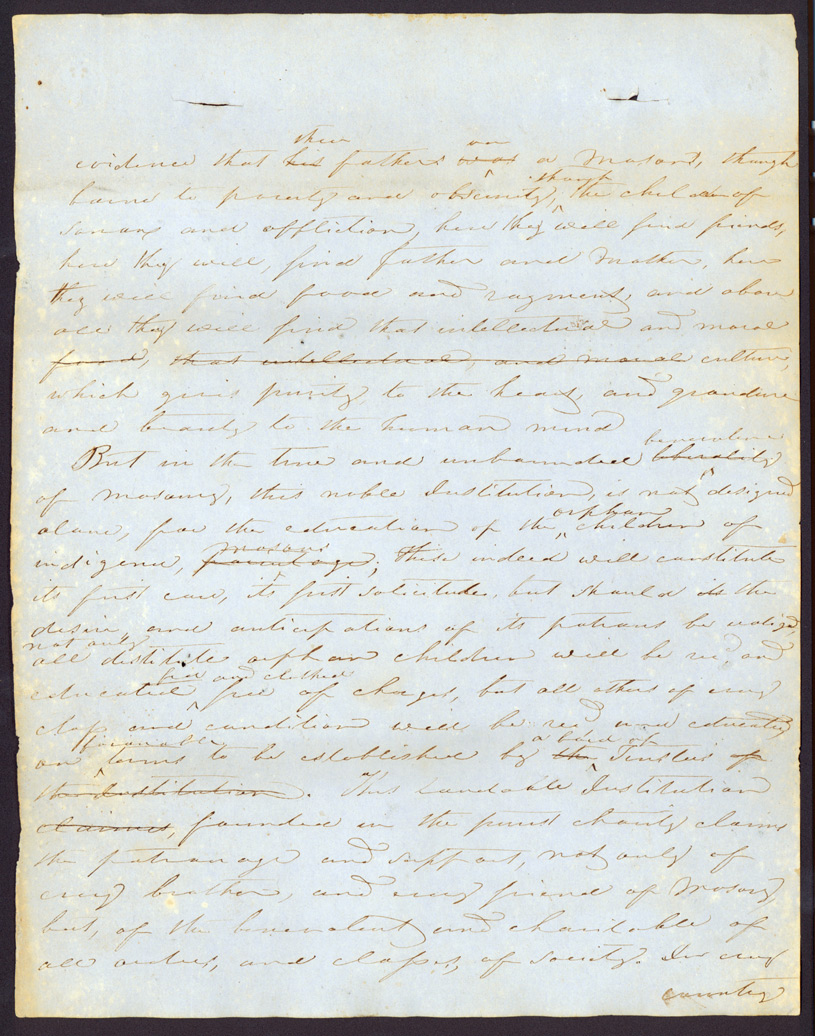 their are
evidence that his fathers was a Masons, though
borne to poverty and obscurity, though the children of
sorrow and affliction, here they will find friends,
here they will, find father and Mother, here
they will find food and rayment, and above
all they will find that intellectual and moral
food, that intellectual, and moral culture,
which gives purity to the heart, and grandure
and beauty to the human mind
benevolence
But in the true and unbounded liberality
of masonry, this noble Institution, is not designed
orphan
alone, for the education of the children of
masons
indigence, parentage; these indeed will constitute
its first care, its first solicitude, but should the
desire and anticipations of its patrons be realized,
not only
all distitute orphan children will be recd and
fed and clothed
educated free of charge, but all others of every
class and condition will be recd and educated
favourable a board of
on terms to be established by the Trustees of
the Institution. This laudable Institution
claims, founded in the purest charity claims
the patronage and support, not only of
every brother, and every friend of Masonry
but, of the benevolent and charitable of
all orders, and classes, of society. In every
country